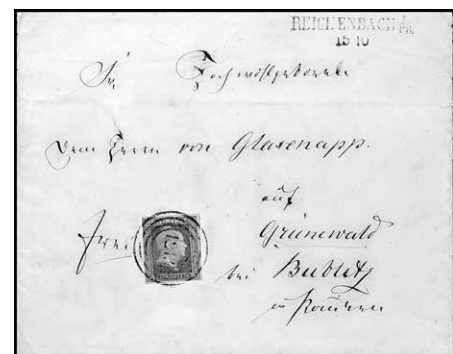 REICHENBACH i/Pr.
15 10
Sr. Hochwohlgeboren
Dem Herrn von Glasenapp.
auf
frei
Grünewald
bei Bublitz
in Pommern